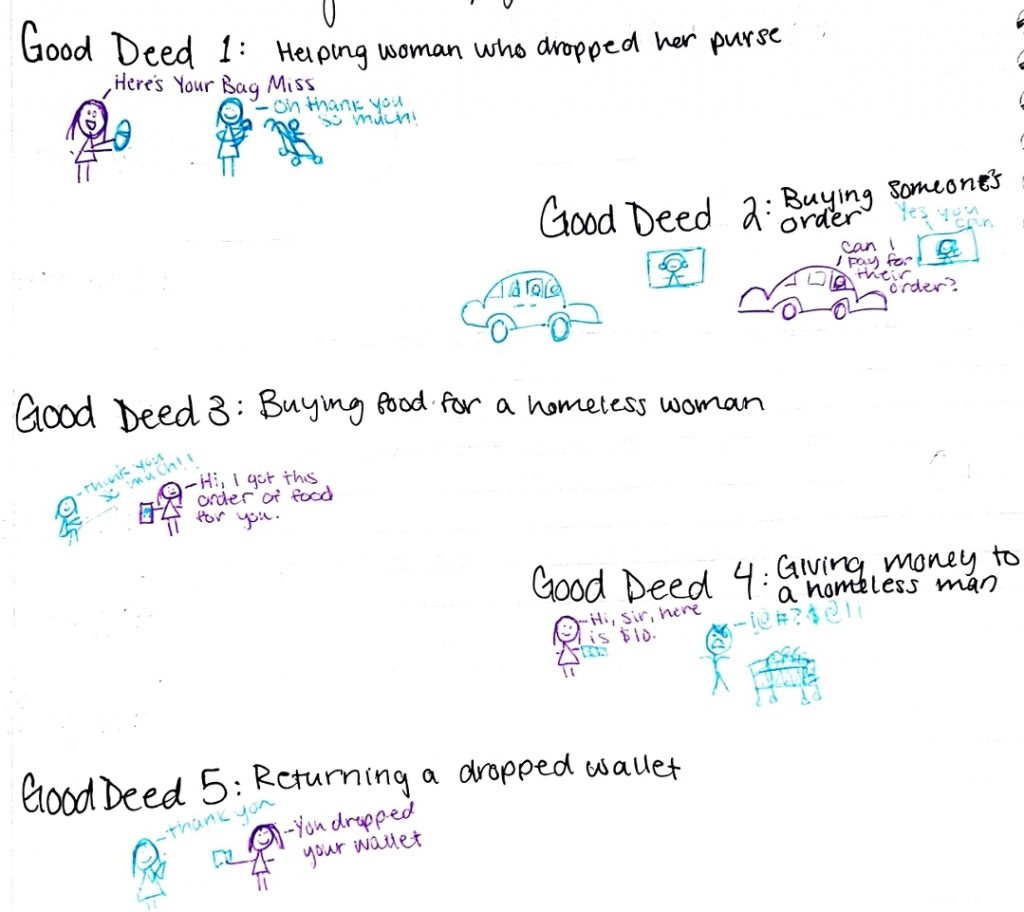 Good Deed 1: Helping woman who dropped her purse
Here's Your Bag Miss
- Oh thank you
so much!
Good Deed 2: Buying someone's
order
Yes you
can
can I
pay for
their
order?
Good Deed 3: Buying food for a homeless woman
- thank you
so much!!
- Hi, I got this
order of food
for you.
Good Deed 4: Giving money to
a homeless man
- Hi, sir, here
is $10.
- !@#?$@!!
Good Deed 5: Returning a dropped wallet
- thank you
- You dropped
your wallet